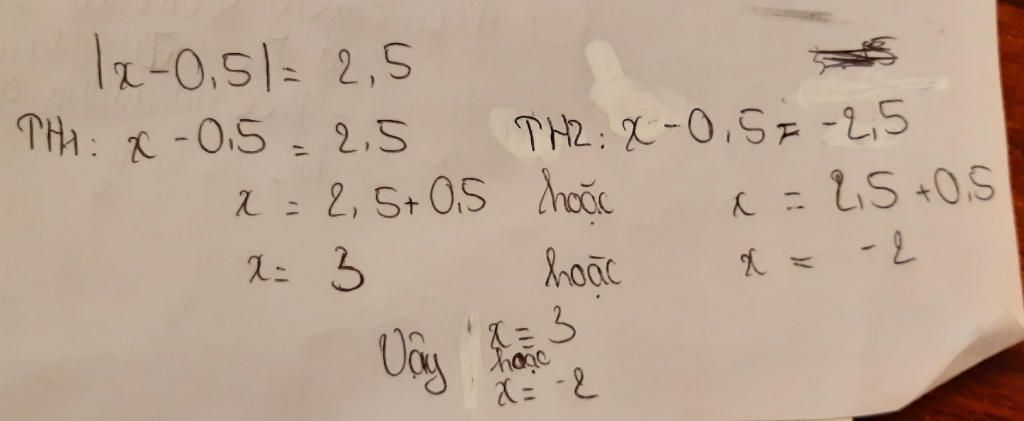 |x-0,5|= 2,5
TH1: x-0,5 = 2,5 TH2: x-0,5 = -2,5
x = 2,5+0,5 hoặc x = 2,5+0,5
x= 3 hoặc x = -2
Vậy x= 3
hoặc
x= -2